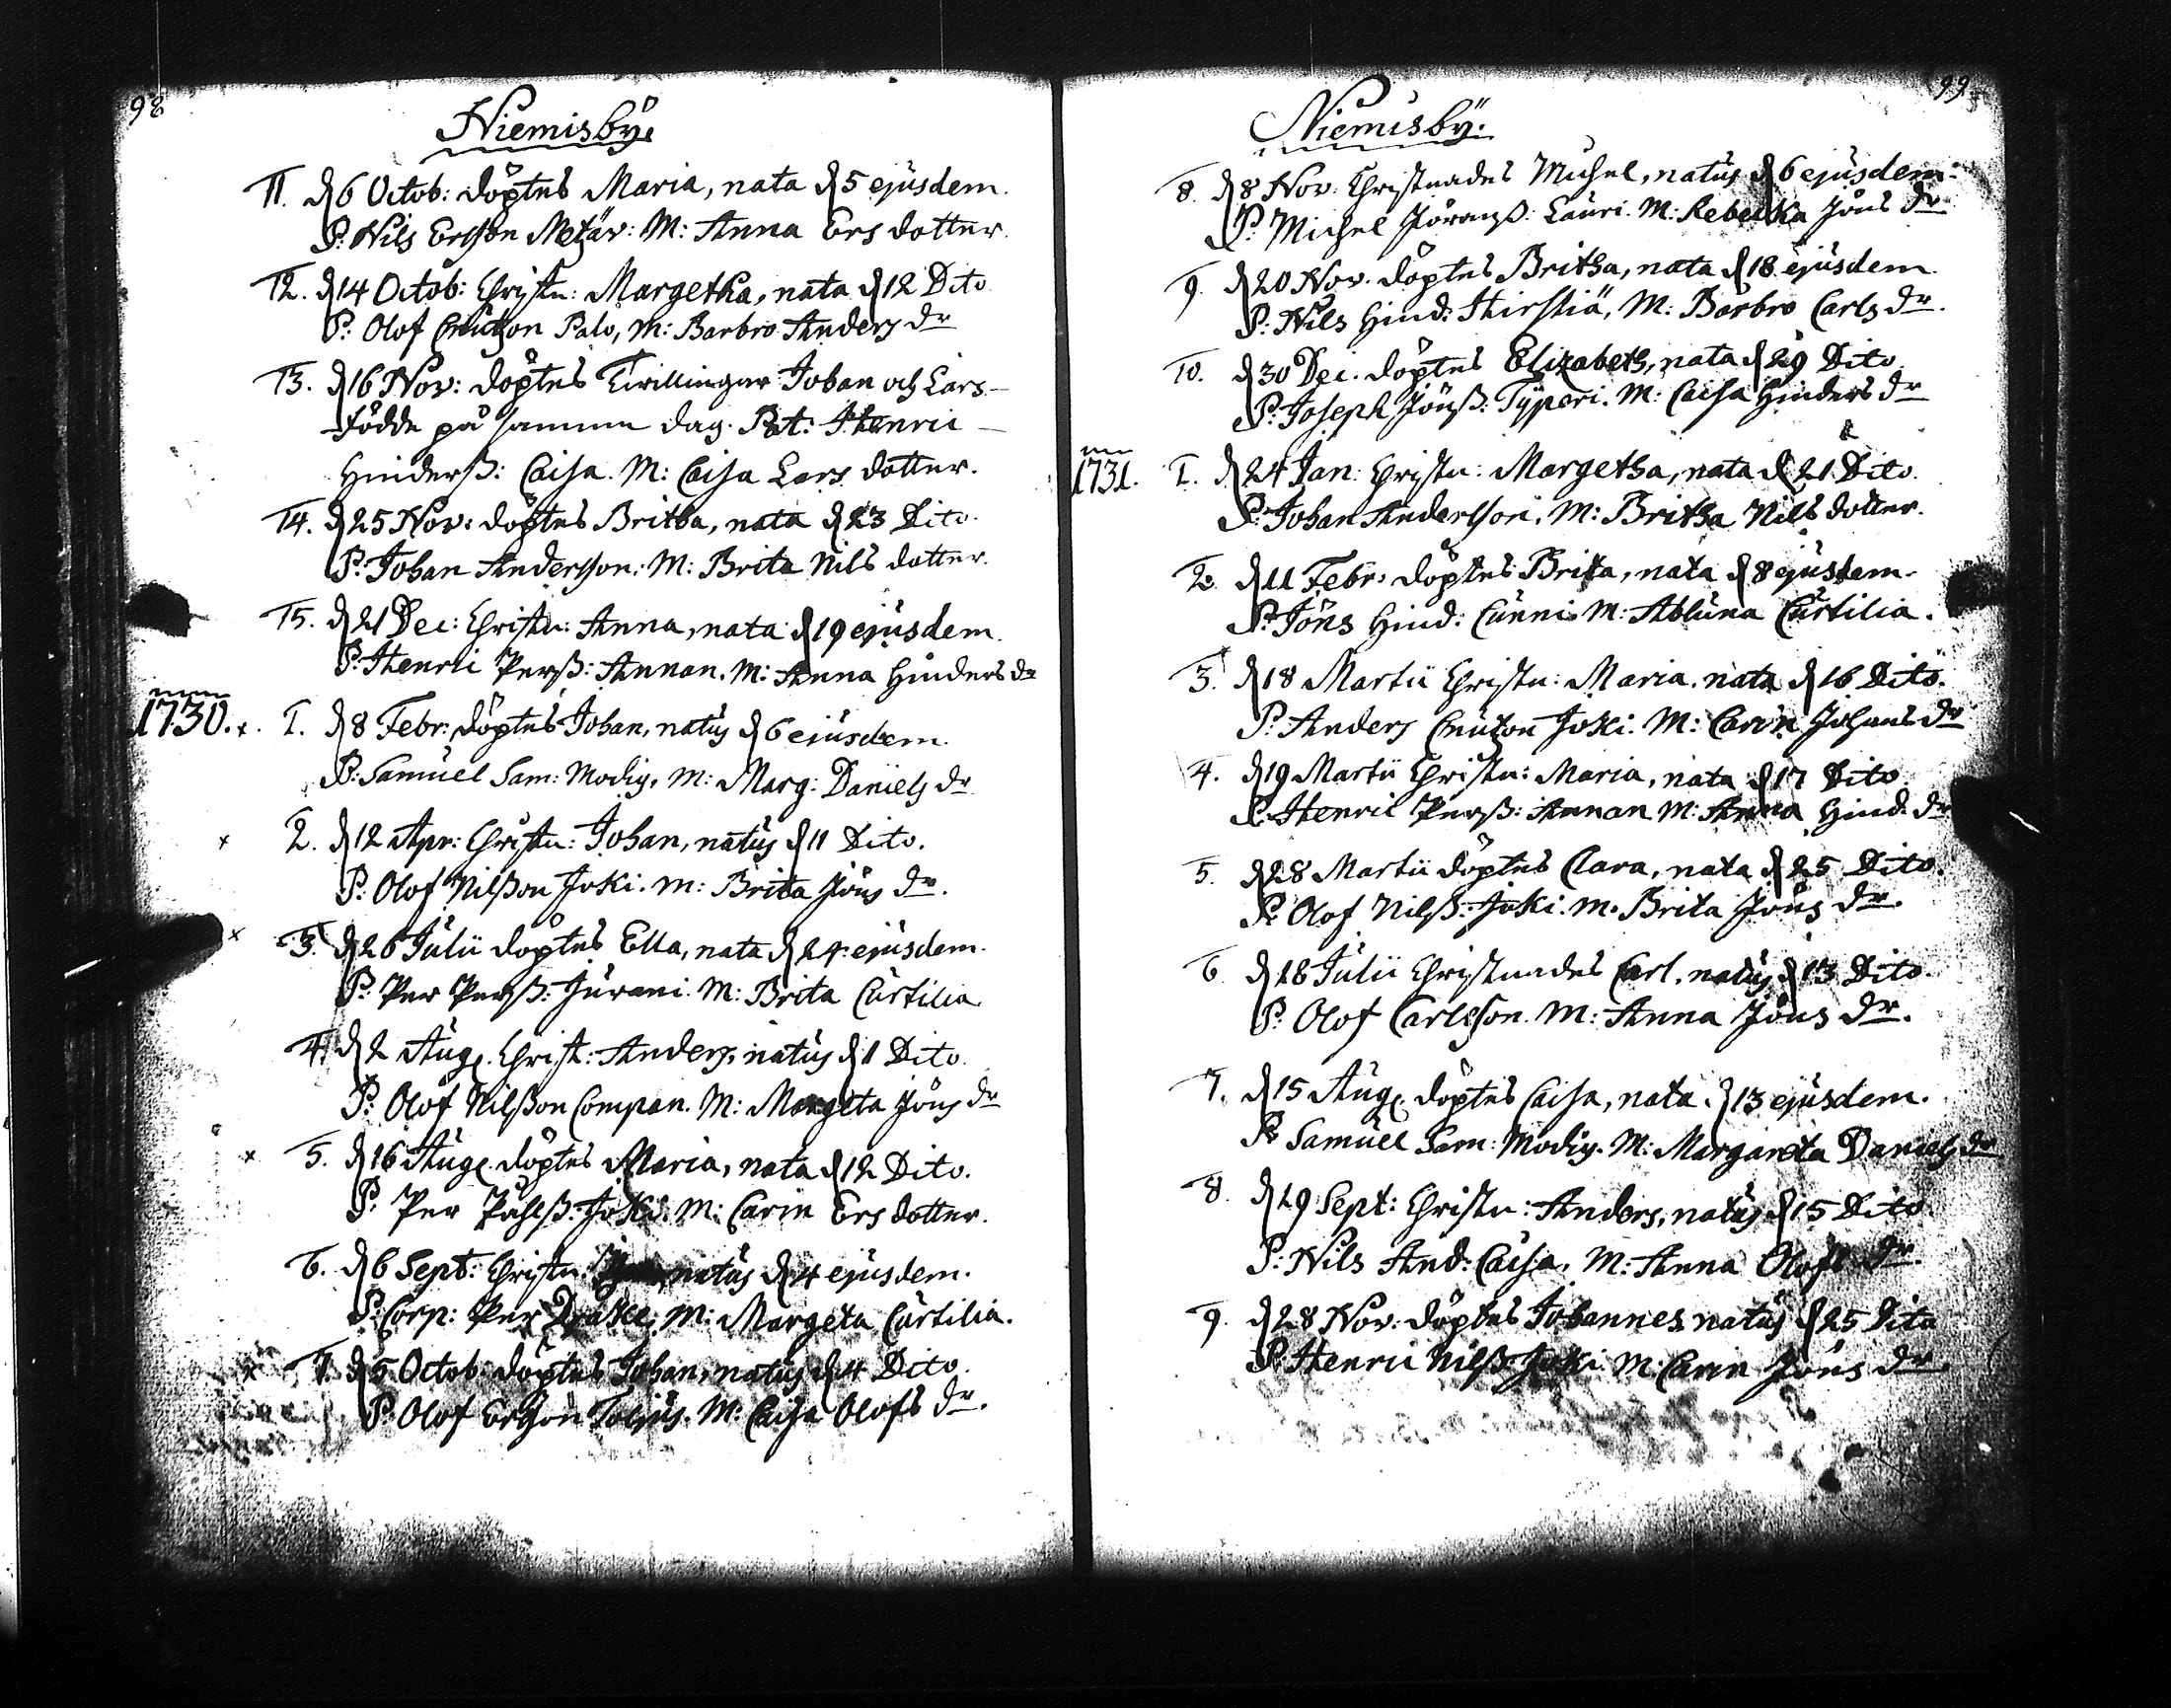 98
Niemisbÿ.
11. d 6 Octob: döptes Maria, nata d 5 ejusdem.
P. Nils Ersson Metäv: M: Anna Ers dotter.
12. d 14 Octob: Christn: Margetha, nata d 12 Dito
P: Olof Cnutzon Palo, M: Barbro Anders dr
13. d 16 Nov: döptes Twillingar Johan och Lars
födde på samma dag. Pat: Henric
Hinderß: Caisa. M: Caisa Lars dotter.
14. d 25 Nov: döptes Britha, nata d 23 Dito.
P: Johan Andersson: M: Brita Nils dotter.
15. d 21 Dec: Christn: Anna, nata d 19 ejusdem.
P: Henric Perß: Annan. M: Anna Hinders dr
1730. x. 1. d 8 Febr: döptes Johan, natus d 6 ejusdem.
P: Samuel Sam: Modig, M: Marg: Daniels dr
x 2. d 12 Apr: Christn: Johan, natus d 11 Dito.
P: Olof Nilßon Joki. M: Brita Jöns dr.
x 3. d 26 Julii döptes Ella, nata d 24 ejusdem.
P: Per Perß: Jurani. M: Brita Curtilia
4. d 2 Aug. Christ: Anders, natus d 1 Dito.
P: Olof Nilßon Compan. M: Margeta Jöns dr
x 5. d 16 Aug. döptes Maria, nata d 12 Dito.
P: Per Påhlß: Joki. M: Carin Ers dotter.
6. d 6 Sept: Christn: natus d 4 ejusdem.
P: Corp: Per Drake; M: Margeta Curtilia.
x 7. d 5 Octob: döptes Johan, natus d 4 Dito.
P: Olof Ersson Tolpus. M: Caisa Olofs dr.
99
Niemisbÿ.
8. d 8 Nov: Christnades Michel, natus d 6 ejusdem.
P: Michel Jöranß: Lauri. M: Rebecka Jöns dr
9. d 20 Nov. döptes Britha, nata d 18 ejusdem.
P: Nils Hind: Hirstiä, M: Barbro Carls dr.
10. d 30 Dec. döptes Elizabeth, nata d 29 Dito.
P: Joseph Jönß: Typeri. M: Caisa Hinders dr
1731. 1. d 24 Jan: Christn: Margetha, nata d 21 Dito.
P: Johan Andersson. M: Britha Nils dotter.
2. d 11 Febr: döptes Brita, nata d 8 ejusdem.
P: Jöns Hind: Cunni M: Abluna Curtilia.
3. d 18 Martii Christn: Maria. nata d 16 Dito.
P: Anders Cnutzon Joki. M: Carin Johans dr
4. d 19 Martii Christn: Maria, nata d 17 Dito
P: Henric Perß: Annan M: Anna Hind: dr
5. d 28 Martii döptes Clara, nata d 25 Dito.
P: Olof Nilß: Joki. M. Brita Jöns dr.
6 d 18 Julii Christnades Carl. natus d 13 Dito.
P: Olof Carlsson. M: Anna Jöns dr.
7. d 15 Aug. döptes Caisa, nata d 13 ejusdem.
P: Samuel Sam: Modig. M: Margareta Daniels dr
8. d 19 Sept: Christn: Anders, natus d 15 Dito
P: Nils And: Caisa, M: Anna Olofs dr.
9. d 28 Nov: döptes Johannes natus d 25 Dito
P: Henric Nilß: Joki M. Carin Jöns dr.